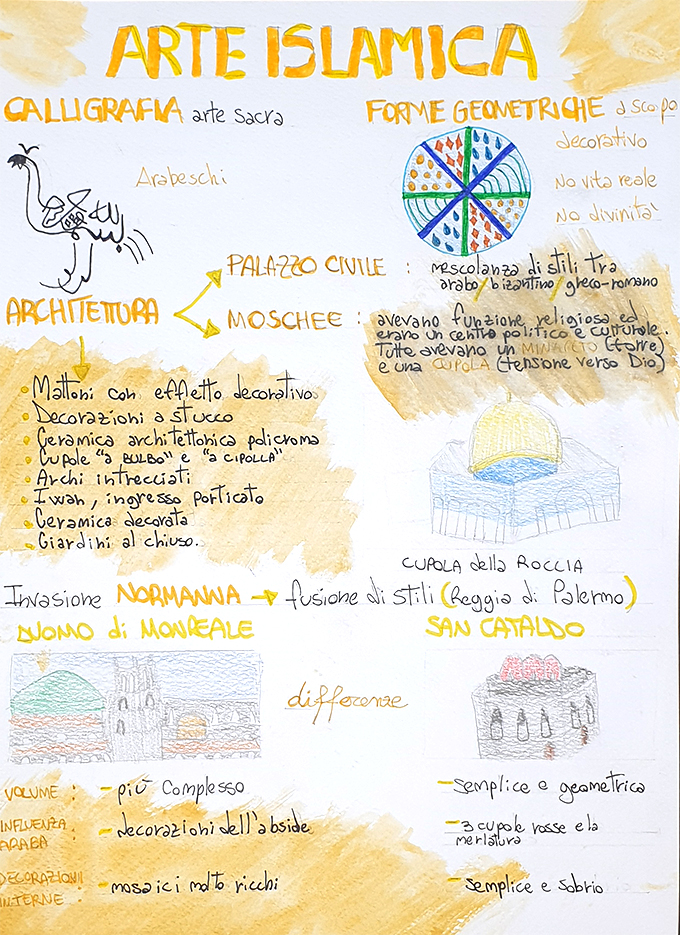 ARTE ISLAMICA
CALLIGRAFIA arte sacra
Arabeschi
FORME GEOMETRICHE a scopo
decorativo
No vita reale
No divinita'
ARCHITETTURA
PALAZZO CIVILE : mescolanza di stili tra
arabo/bizantino/greco-romano
MOSCHEE : avevano funzione religiosa ed
erano un centro politico e culturale.
Tutte avevano un MINARETO (torre)
e una CUPOLA (tensione verso Dio)
• Mattoni con effetto decorativo
• Decorazioni a stucco
• Ceramica architettonica policroma
• Cupole "a BULBO" e "a CIPOLLA"
• Archi intrecciati
• Iwan, ingresso porticato
• Ceramica decorata
• Giardini al chiuso.
CUPOLA della ROCCIA
Invasione NORMANNA → fusione di stili (Reggia di Palermo)
DUOMO di MONREALE
SAN CATALDO
differenze
VOLUME : - più complesso - semplice e geometrica
INFLUENZA
ARABA : - decorazioni dell'abside - 3 cupole rosse e la
merlatura
DECORAZIONI
INTERNE : - mosaici molto ricchi - semplice e sobrio